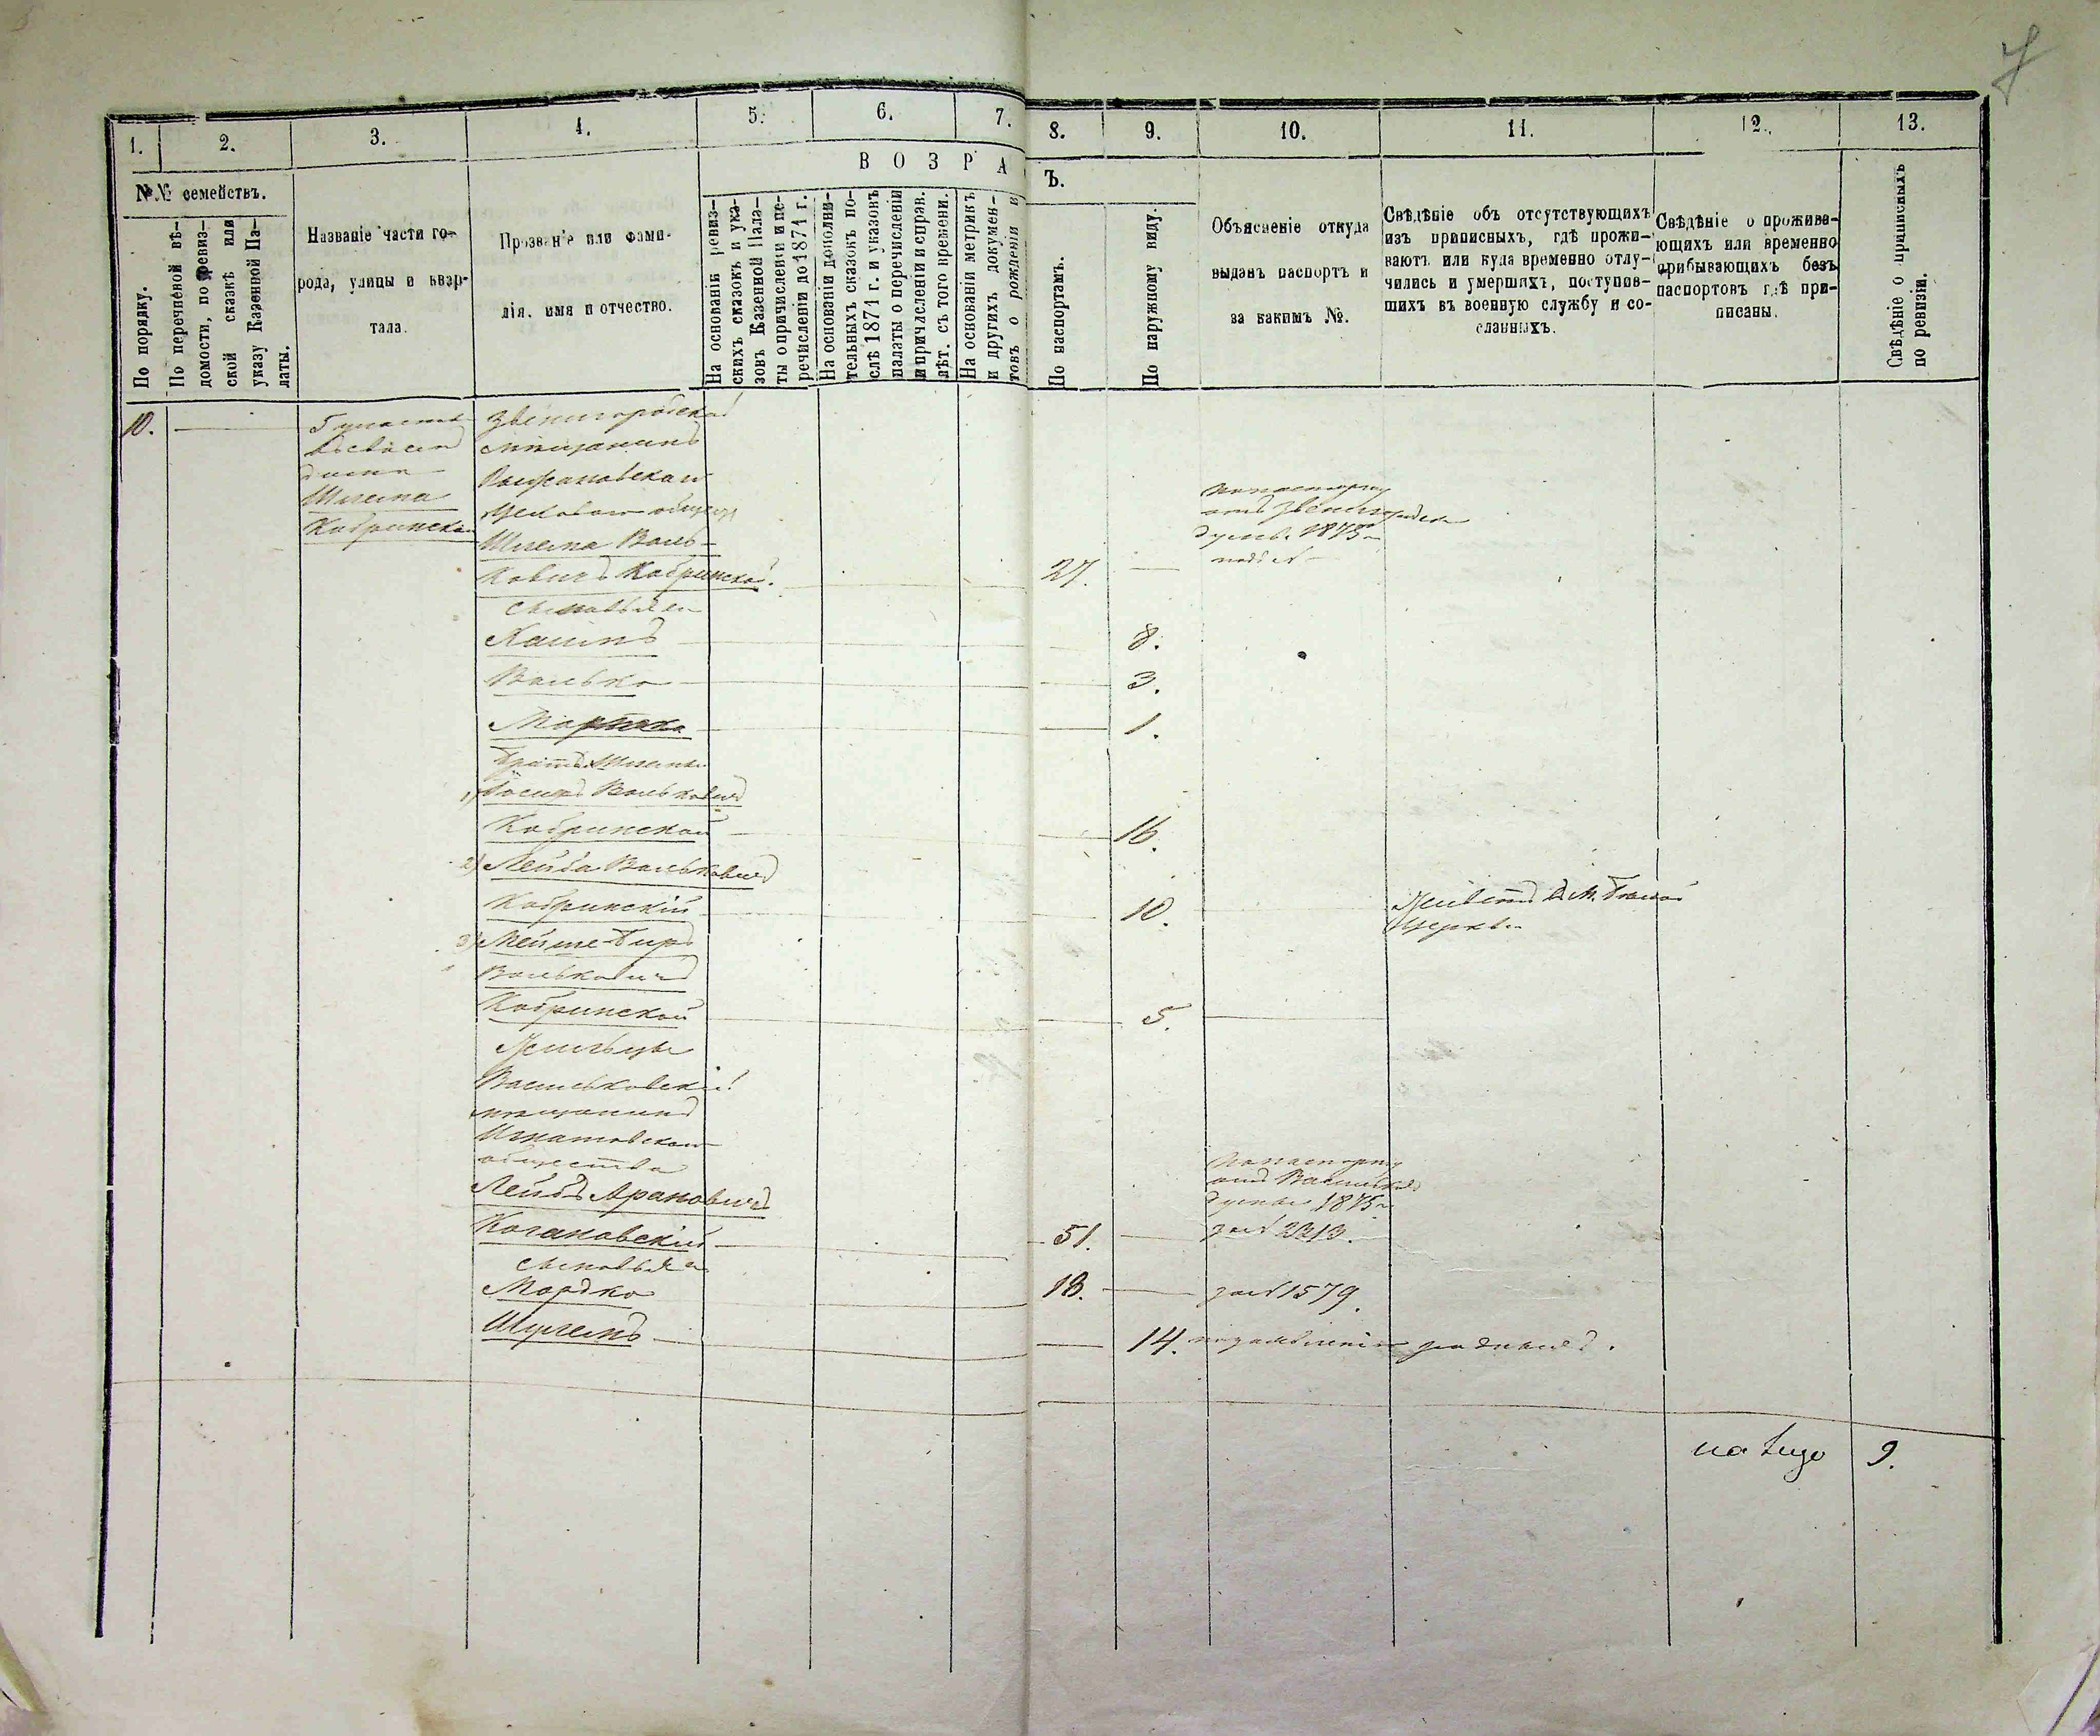 7
1.
2.
3.
4.
5.
6.
7.
8.
9.
10.
11.
12.
13.
ВОЗРА
Ъ.
№№ семействъ.
По порядку.
По перечневой вѣ-
домости, по ревиз-
ской сказкѣ или
указу Казенной Па-
латы.
Названіе части го-
рода, улицы и квар-
тала.
Прозваніе или фами-
лія, имя и отчество.
На основаніи ревиз-
скихъ сказокъ и ука-
зовъ Казенной Пала-
ты о причисленіи и пе-
речисленіи до 1871 г.
На основаніи дополни-
тельныхъ сказокъ по-
слѣ 1871 г. и указовъ
палаты о перечисленіи
и причисленіи и справ.
лѣт. съ того времени.
На основаніи метрикъ
и другихъ докумен-
товъ о рожденіи и
По паспортамъ.
По наружному виду.
Объясненіе откуда
выданъ паспортъ и
за какимъ №.
Свѣдѣніе объ отсутствующихъ
изъ приписныхъ, гдѣ прожи-
ваютъ или куда временно отлу-
чились и умершихъ, поступив-
шихъ въ военную службу и со-
сланныхъ.
Свѣдѣніе о прожива-
ющихъ или временно
прибывающихъ безъ
паспортовъ гдѣ при-
писаны.
Свѣдѣніе о приписныхъ
по ревизіи.
10.
домъ
Шлема
Кобринскаго
Звенигородской
мѣщанинъ
Шлема Воль-
ковичъ Кобринской.
27.
по паспорту
отъ Звенигородск
думы 1875
сыновья его
Хаимъ
8.
Волько
3.
Мортко
1.
Братъ Шлемы
1) Іосифъ Вольковичъ
Кобринской
16.
2) Лейба Вольковичъ
Кобринскій
10.
Живетъ въ М. Бѣлой
Церкви
3) Мейше-Биръ
Вольковичъ
Кобринской
5.
Жильцы
Васильковскій
мѣщанинъ
Игнатовскаго
общества
Лейбъ Ароновичъ
Когановскій
51.
по паспорту
отъ Васильков
думы 1875
за № 2313.
сыновья его
Мордко
18.
за № 1579.
Шулемъ
14.
на лицо
9.